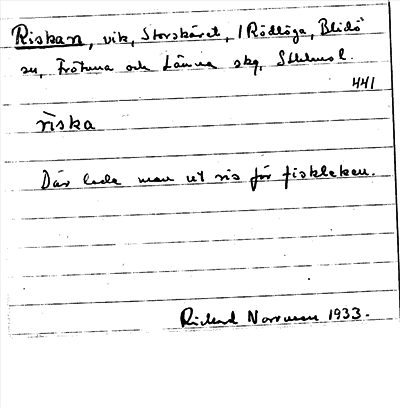 Riskan, vik, Storskäret, i Rödlöga, Blidö
sn, Frötuna och Länna skg, Sthlms l.
441
rìska
Där lade man ut ris för fiskleken.
Rickard Norrman 1933.